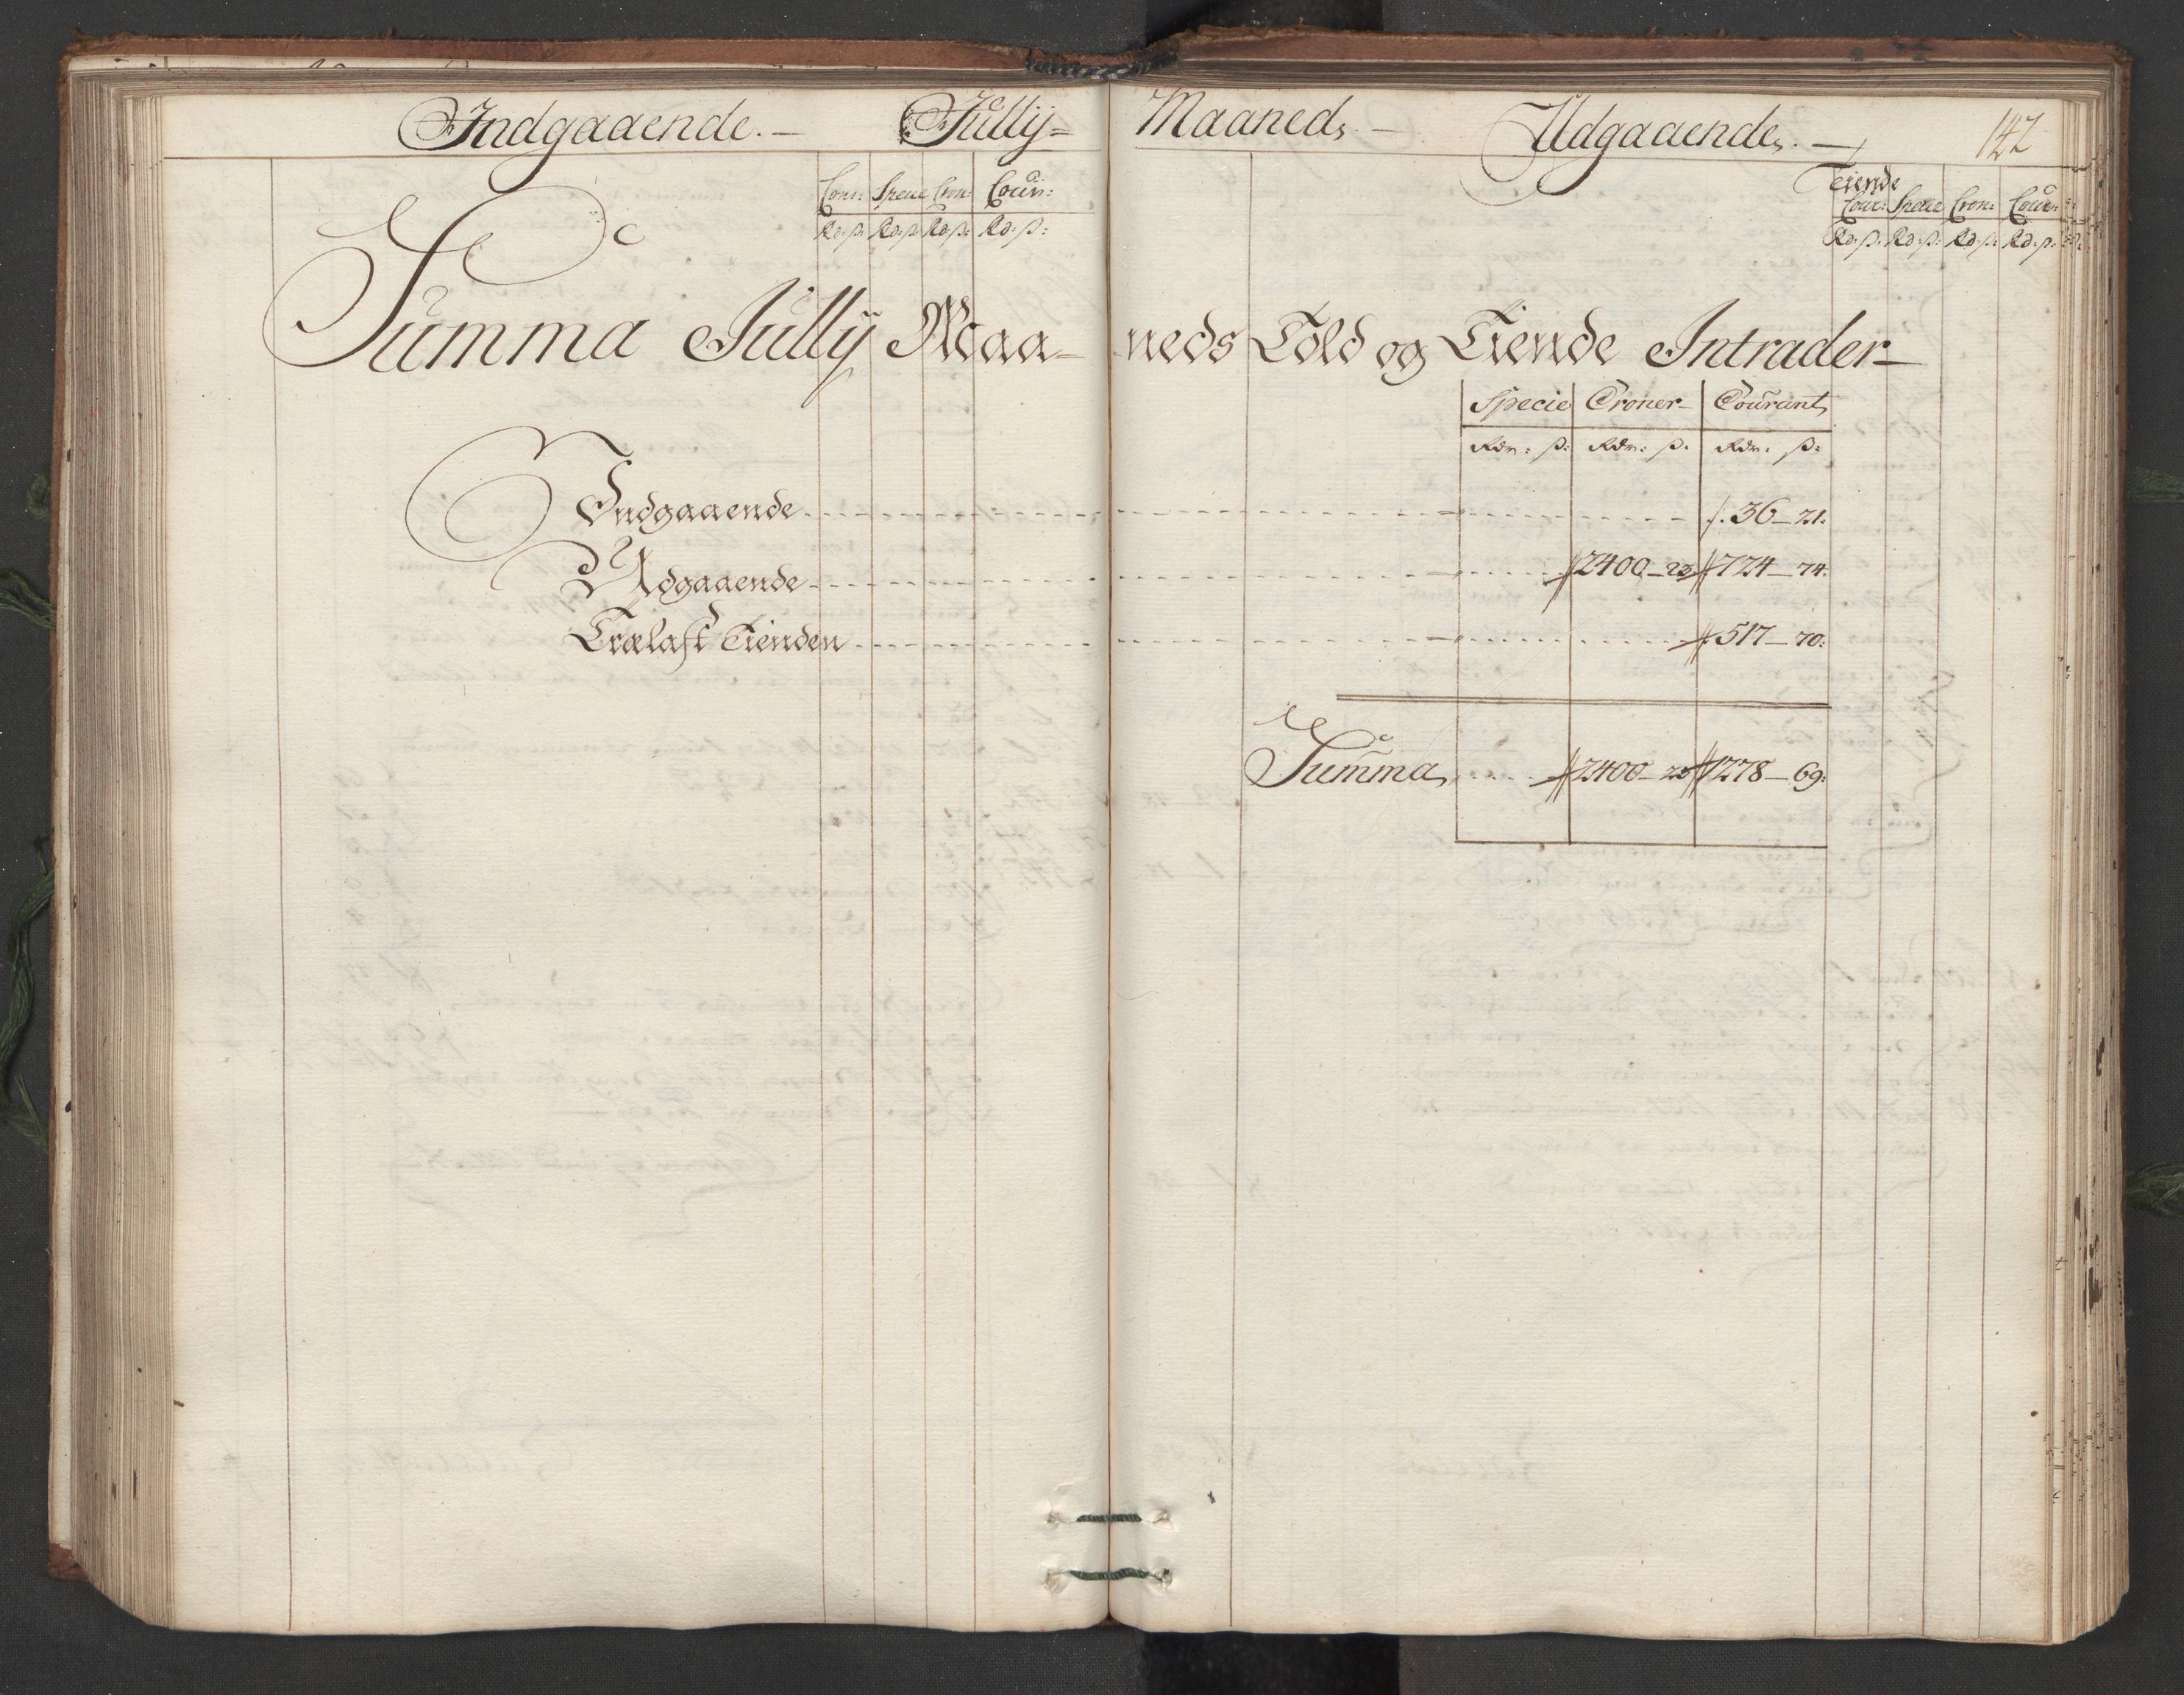 Indgaaende. — Jullÿ= Maaneds — Udgaaende. — 142
Cour: Specie Cron: Cour:
Rd: ß: Rd: ß: Rd: ß: Rd: ß:
Teiende
Cour: Specie Cron: Cour:
Rd: ß: Rd: ß: Rd: ß: Rd: ß:
Summa Jullÿ Maa- neds Told og Tiende Intrader-
Specie Croner- Courant
Rdr: ß: Rdr: ß: Rdr: ß:
Indgaaende 36 — 21:
Udgaaende 2400 — 23 724 — 74:
Trælast Tienden 517 — 70:
Summa 2400 — 23 1278 — 69: